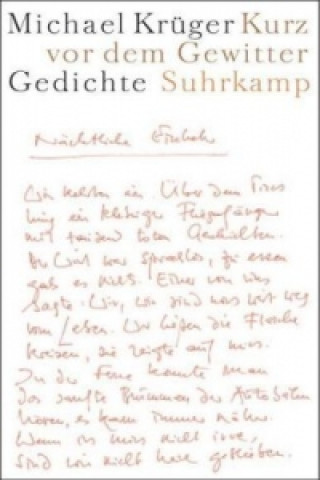 Michael Krüger Kurz
vor dem Gewitter
Gedichte Suhrkamp
Nächtliche Einkehr
Wir kehrten ein. Über dem Tresen
hing ein klebriger Fliegenfänger
mit tausend toten Geschichten.
Der Wirt war sprachlos, zu essen
gab es nichts. Einer von uns
sagte: Wir, wir sind was weit weg
vom Leben. Wir ließen die Flasche
kreisen, sie zeigte auf uns.
In der Ferne konnte man
das sanfte Brummen der Autobahn
hören, es kam immer näher.
Wenn ich mich nicht irre,
sind wir nicht lang geblieben.